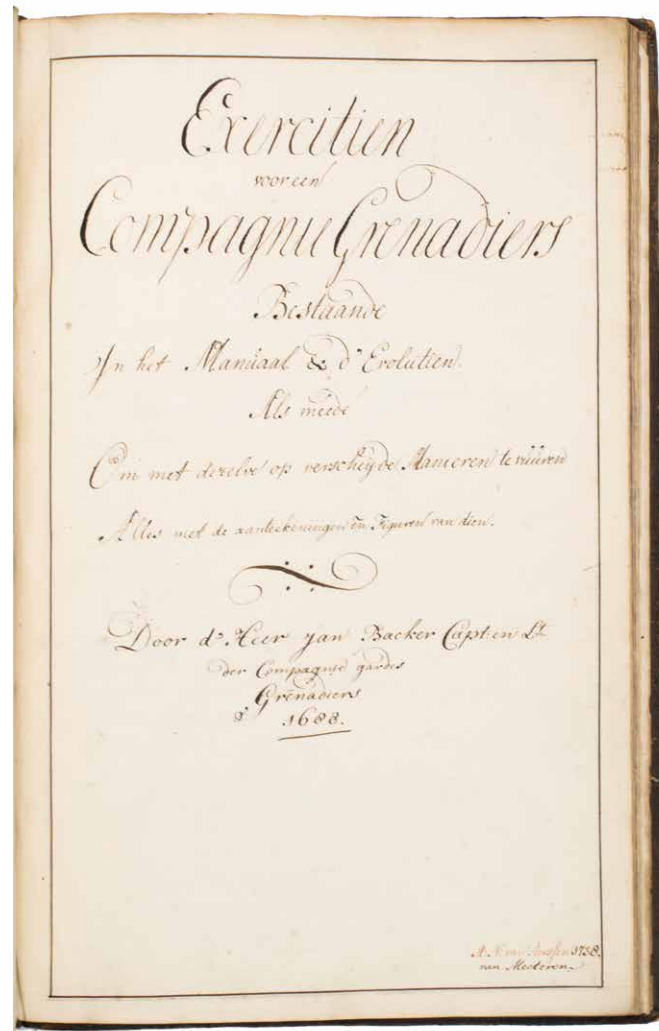 Exercitien
voor een
Compagnie Grenadiers
Bestaande
In het Manuaal & d' Evolutien.
Als meede
Om met dezelve op verscheyde Manieren te vuuren
Alles met de aanteekeningen en Figuren van dien.
Door d' Heer Jan Backer Capt: en Lt
der Compagnie gardes
Grenadiers
1688.
1738.
van